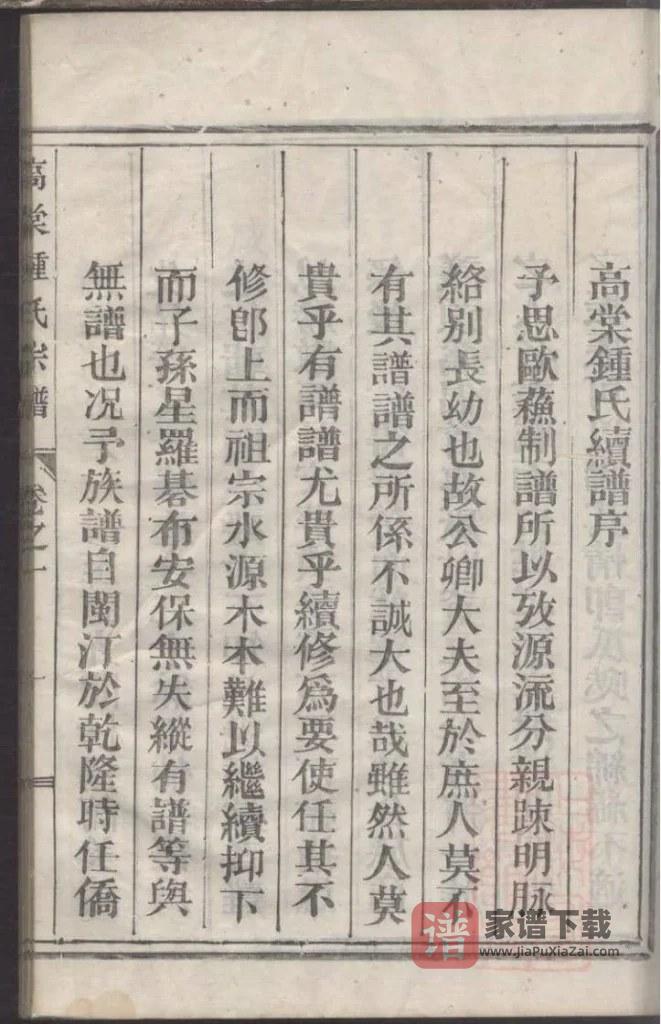 高棠鍾氏續譜序
予思歐蘇制譜所以攷源流分親疎明脉
絡别長幼也故公卿大夫至於庶人莫不
有其譜譜之所係不誠大也哉雖然人莫
貴乎有譜譜尤貴乎續修爲要使任其不
修卽上而祖宗水源木本難以繼續抑下
而子孫星羅碁布安保無失縱有譜等與
無譜也况予族譜自閩汀於乾隆時任僑
高棠鍾氏宗譜 卷之一 一
谱 家谱下载
www.JiaPuXiaZai.com